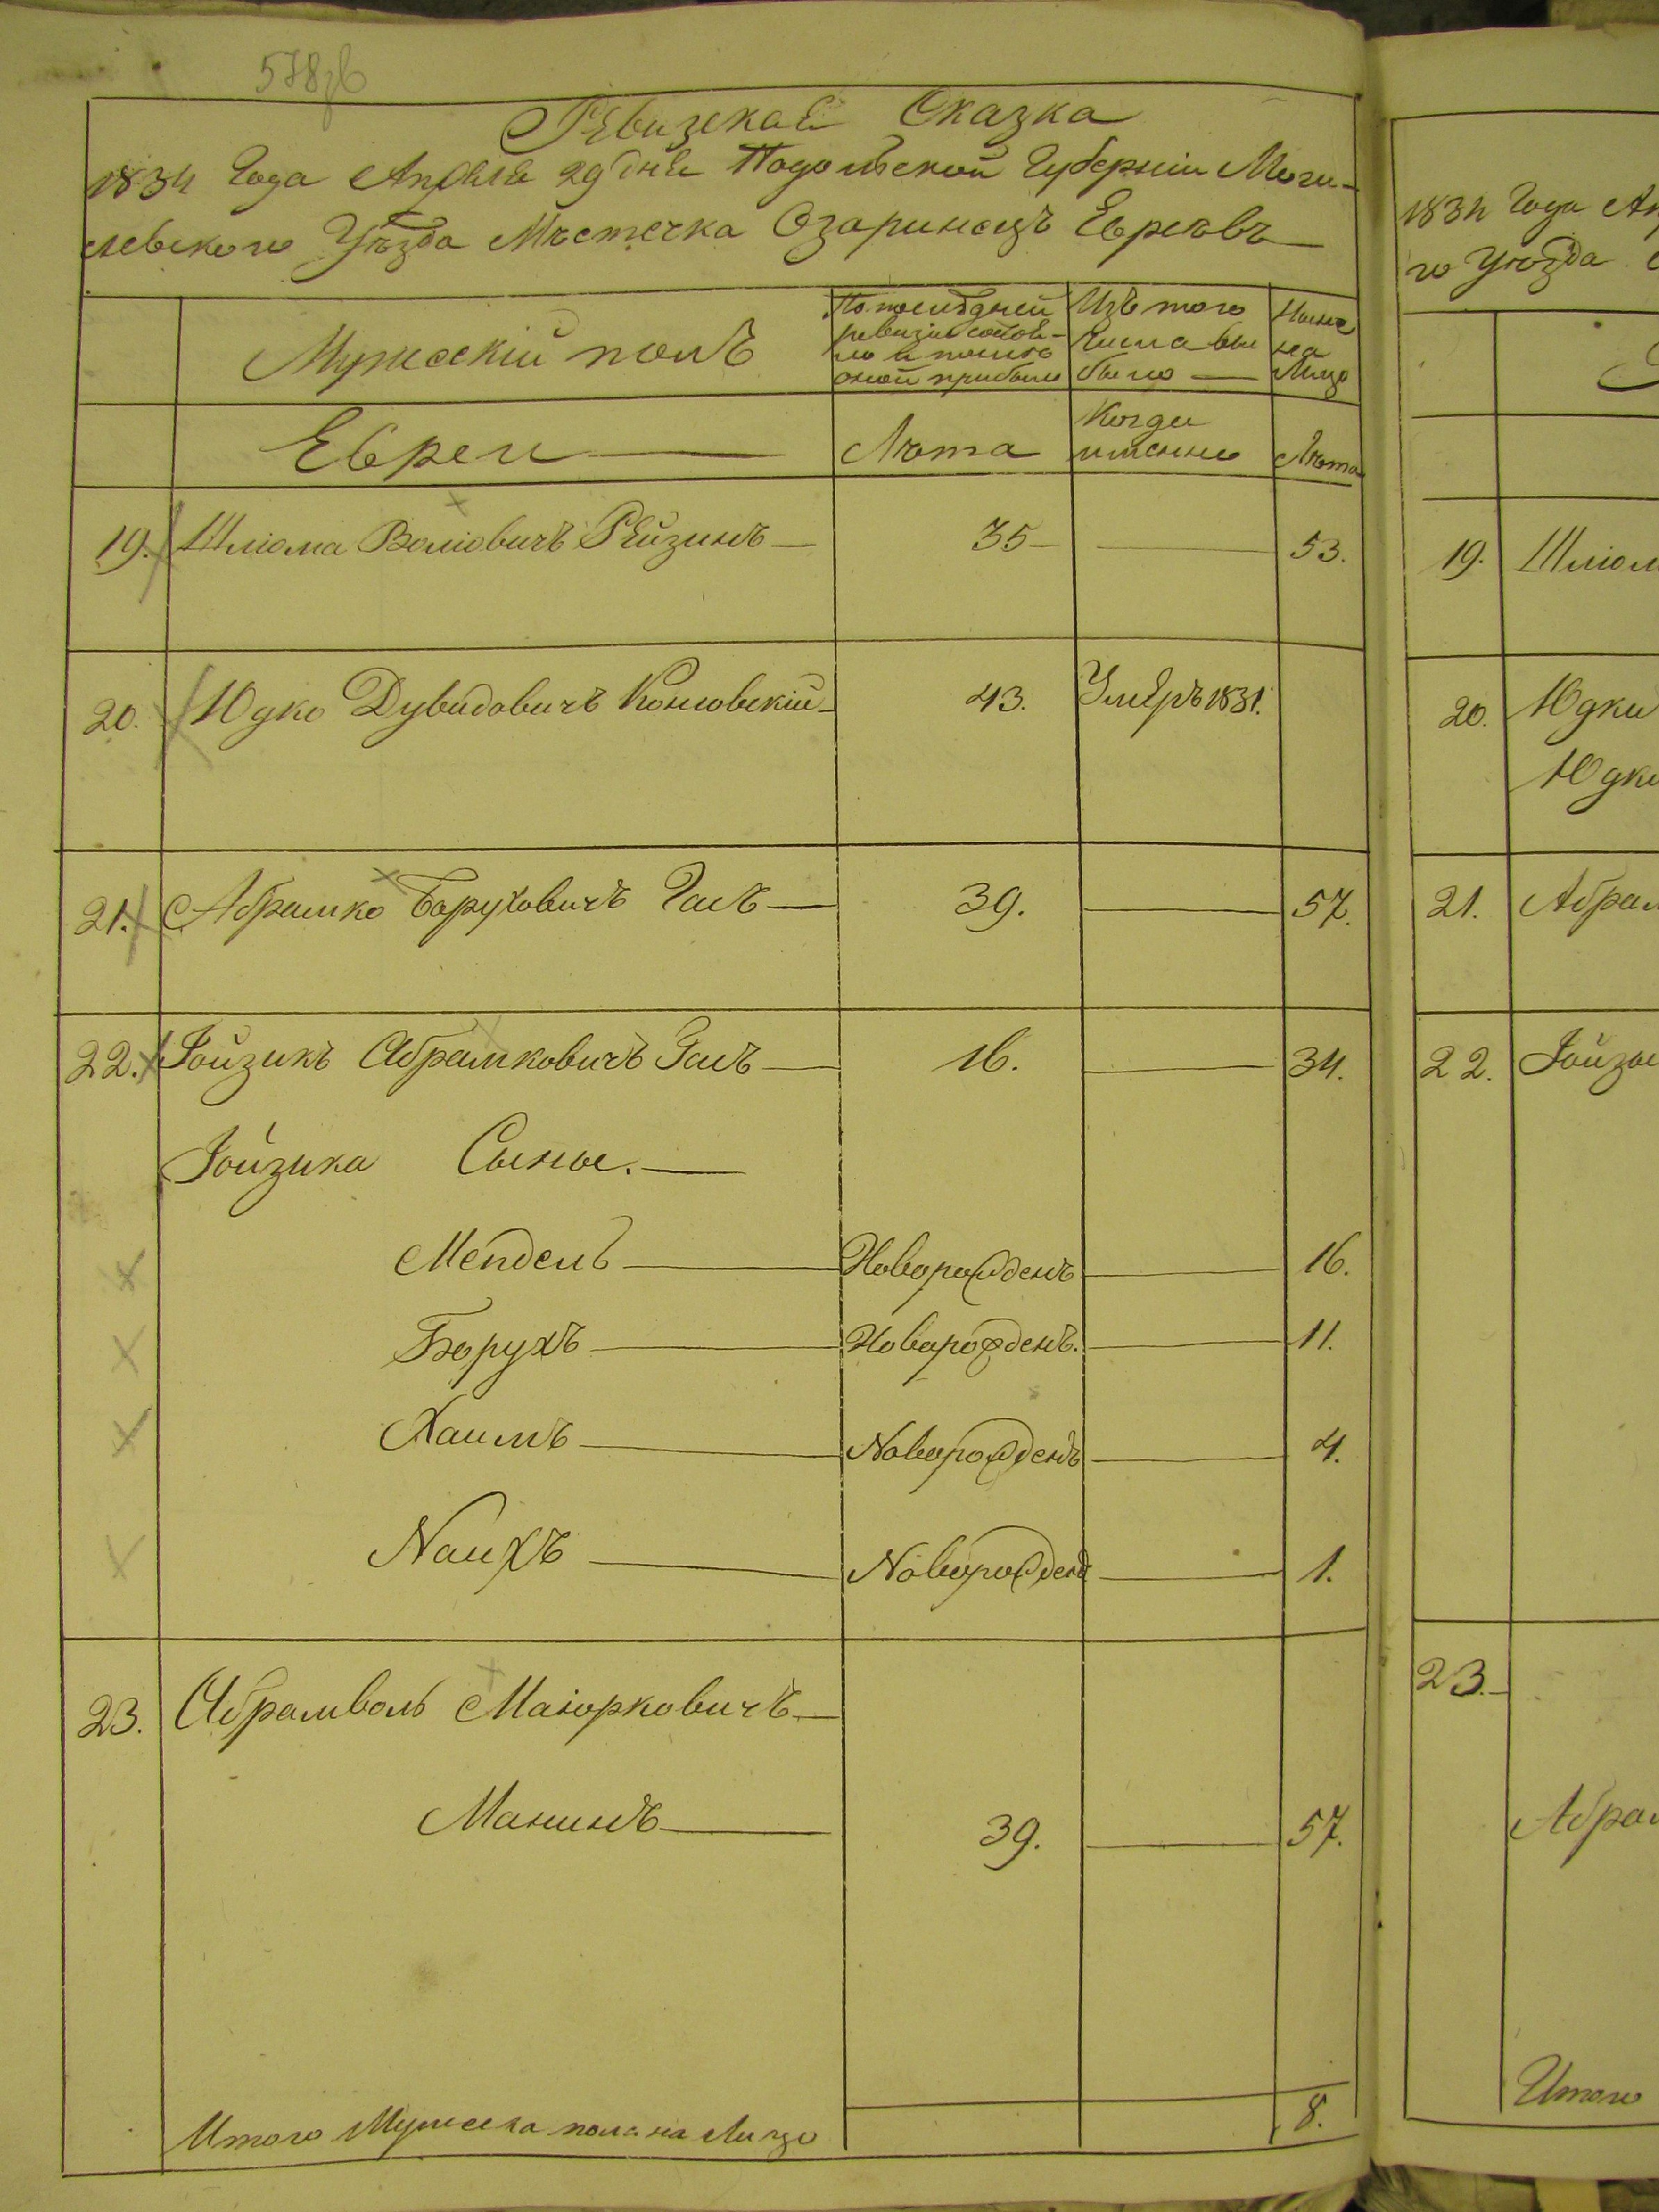 578об
Ревизская Сказка
1834 Года Апреля 29 дня Подольской Губерніи Моги-
левского Уѣзда Мѣстечка Озаринецъ Евреевъ
Мужескій полъ
По последней
ревизіи состоя-
ло и после
оной прибыло
Изъ того
Числа вы
было
Ныне
на
Лицо
Евреи
Лѣта
Когда
именно
Лѣта
19. Шліома Волiовичъ Рейзинъ 35 53.
20. Юдко Дувидовичъ Конловскій 43. Умеръ 1831.
21. Абрамко Боруховичъ Галъ 39. 57.
22. Іойзикъ Абрамковичъ Галъ 16. 34.
Іойзика Сыны.
Мендель Новорожденъ 16.
Борухъ Новорожденъ. 11.
Хаимъ Новорожденъ 4.
Наихъ Новорожденъ 1.
23. Абрамволь Маіорковичъ
Манинъ 39. 57.
Итого Мужеска пола на Лицо 8.
1834 Года Ап
го Уѣзда
19. Шліом
20. Юдки
Юдки
21. Абрам
22. Іойзы
23.
Абрам
Итого